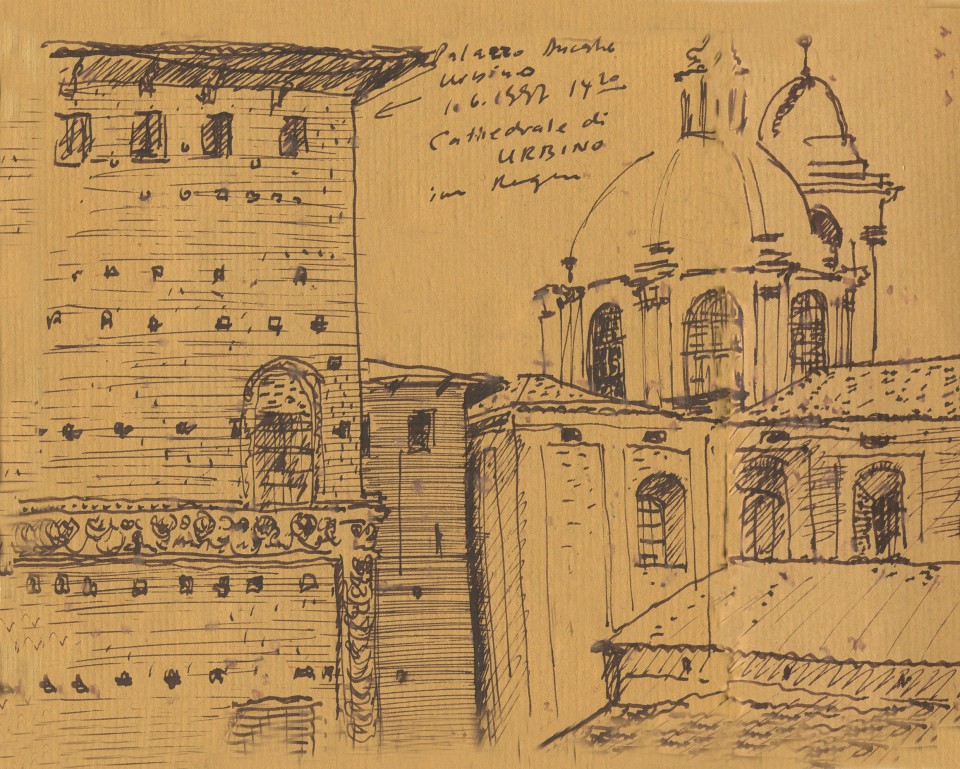 Palazzo Ducale
Urbino
1.6.1997 14 20
Cathedrale di
URBINO
im Regen